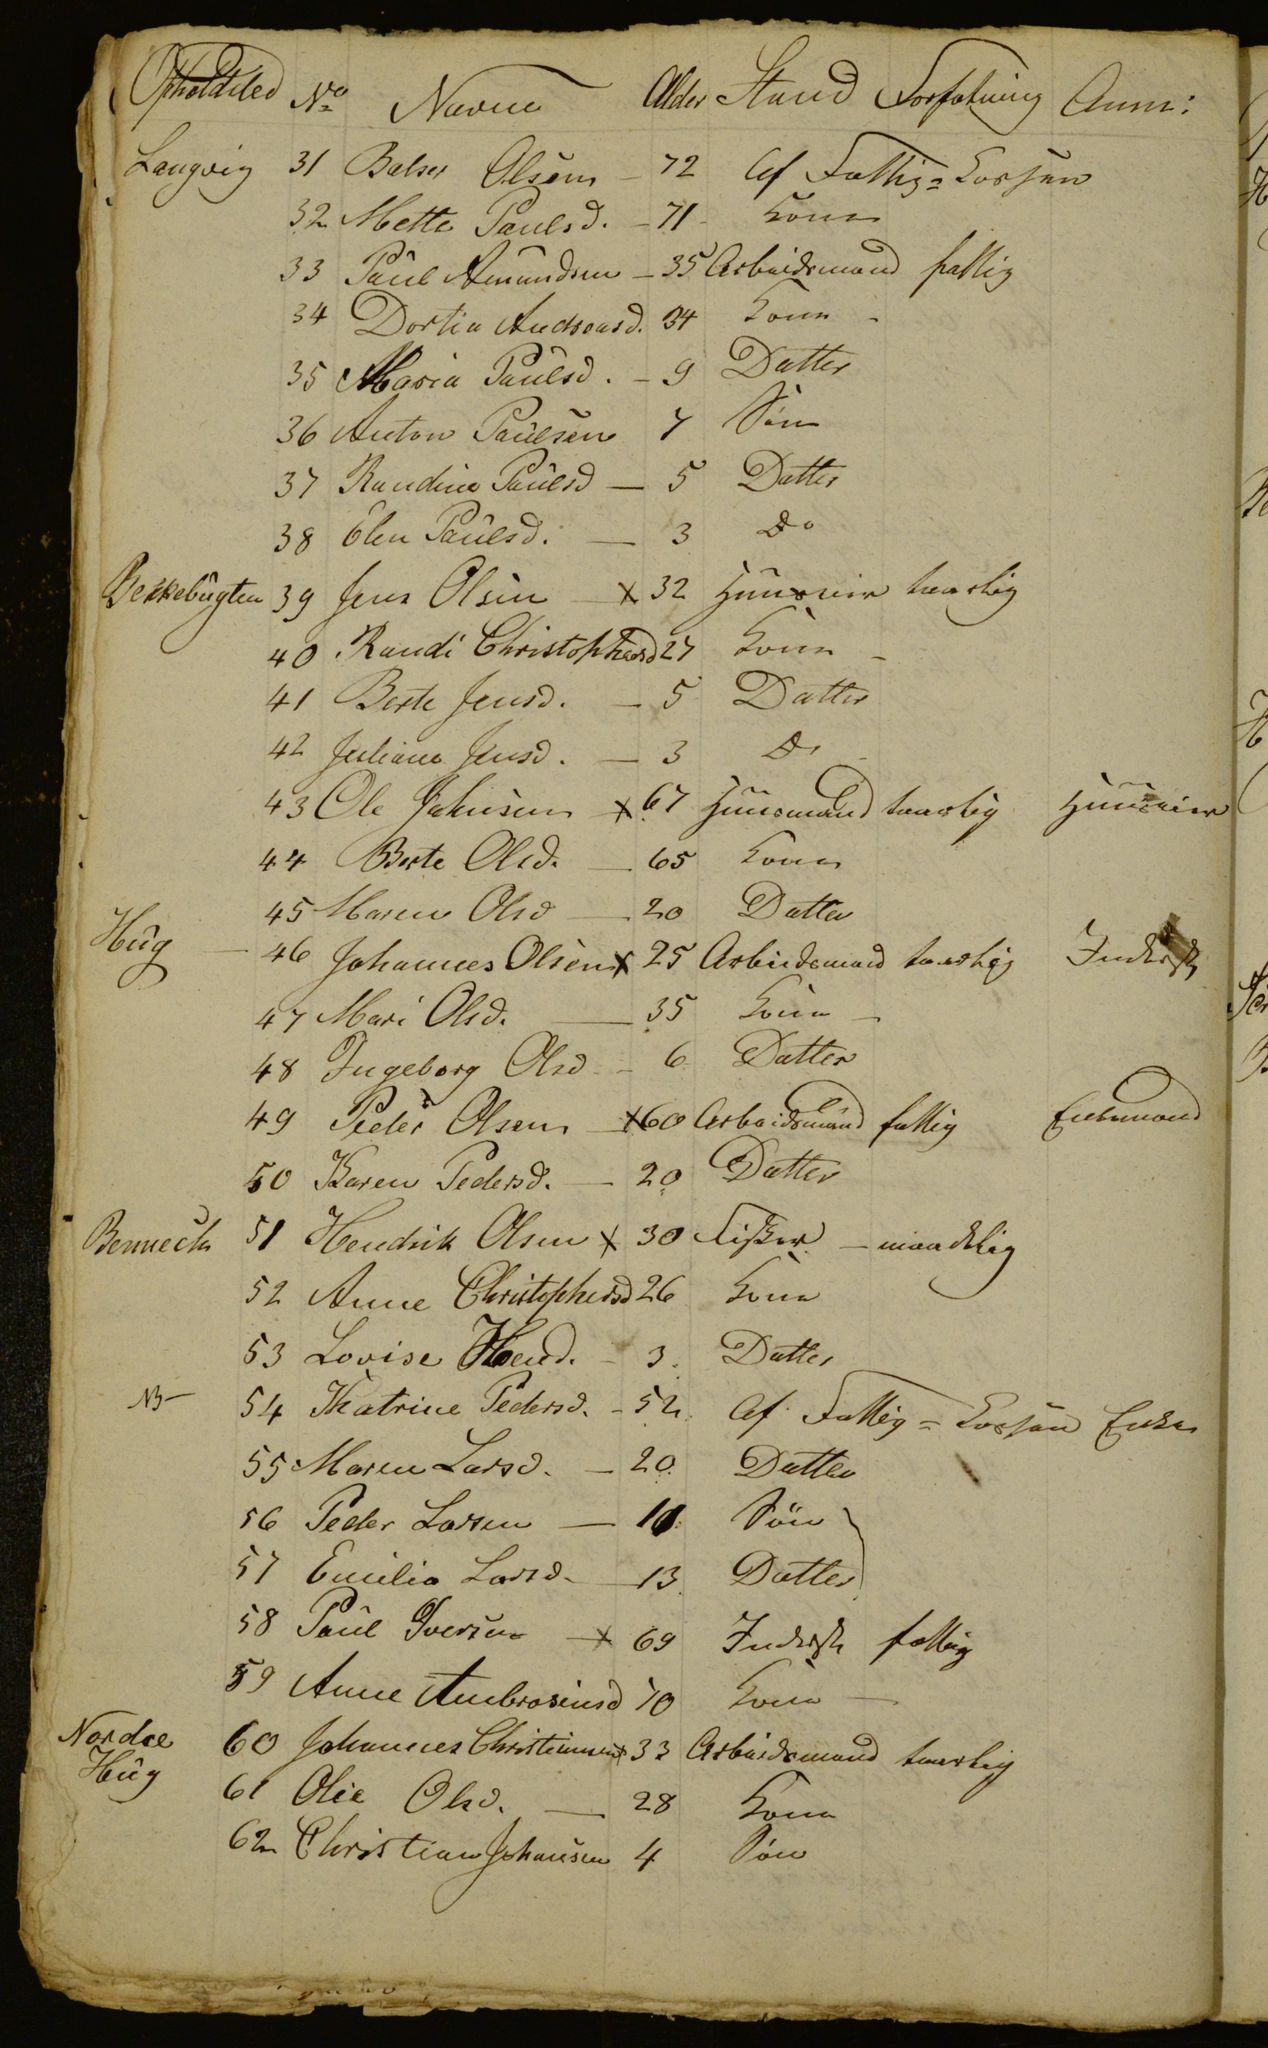 Opholdsted No Navne Alder Stand Forfatning Anm:
Langvig 31 Balser Olsen - 72 Af Fattig=Kassen
32 Mette Paulsd. - 71 - Kone
33 Paul Amundsen - 35 Arbeidsmand fattig
34 Dortia Andreasd. 34 Kone -
35 Maria Paulsd. - 9 Datter
36 Anton Paulsen 7 Søn
37 Randine Paulsd - 5 Datter
38 Elen Paulsd. - 3 Do
Bekkebugten 39 Jens Olsen - x 32 Huuseier taarlig
40 Randi Christophersd 27 Kone -
41 Berte Jensd. - 5 Datter
42 Juliana Jensd. - 3 Do
43 Ole Johnsen x 67 Huusmand taarlig Huuseier
44 Berte Olsd. - 65 Kone
45 Maren Olsd - 20 Datter
Hug - 46 Johannes Olsen x 25 Arbeidsmand taarlig Inderst
47 Mari Olsd. - 35 Kone -
48 Ingeborg Olsd - 6 Datter
49 Peder Olsen - x 60 Arbeidsmand fattig Enkemand
50 Karen Pedersd. - 20 Datter
Bennech 51 Hendrik Olsen x 30 Fisker - maadelig
52 Anne Christophersd 26 Kone
53 Lovise Hend. - 3. Datter
NB - 54 Katrine Pedersd. - 52. Af Fattig=Kassen Enke
55 Maren Larsd. - 20. Datter
56 Peder Larsen - Søn
57 Emilia Larsd. - 13 Datter
58 Paul Iversen - x 69 Inderst fattig
59 Anne Ambrosiusd 70 Kone -
Nordre 60 Johannes Christiansen x 33 Arbeidsmand taarlig
Hug
61 Olie Olsd. - 28 Kone
62 Christian Johansen 4 Søn